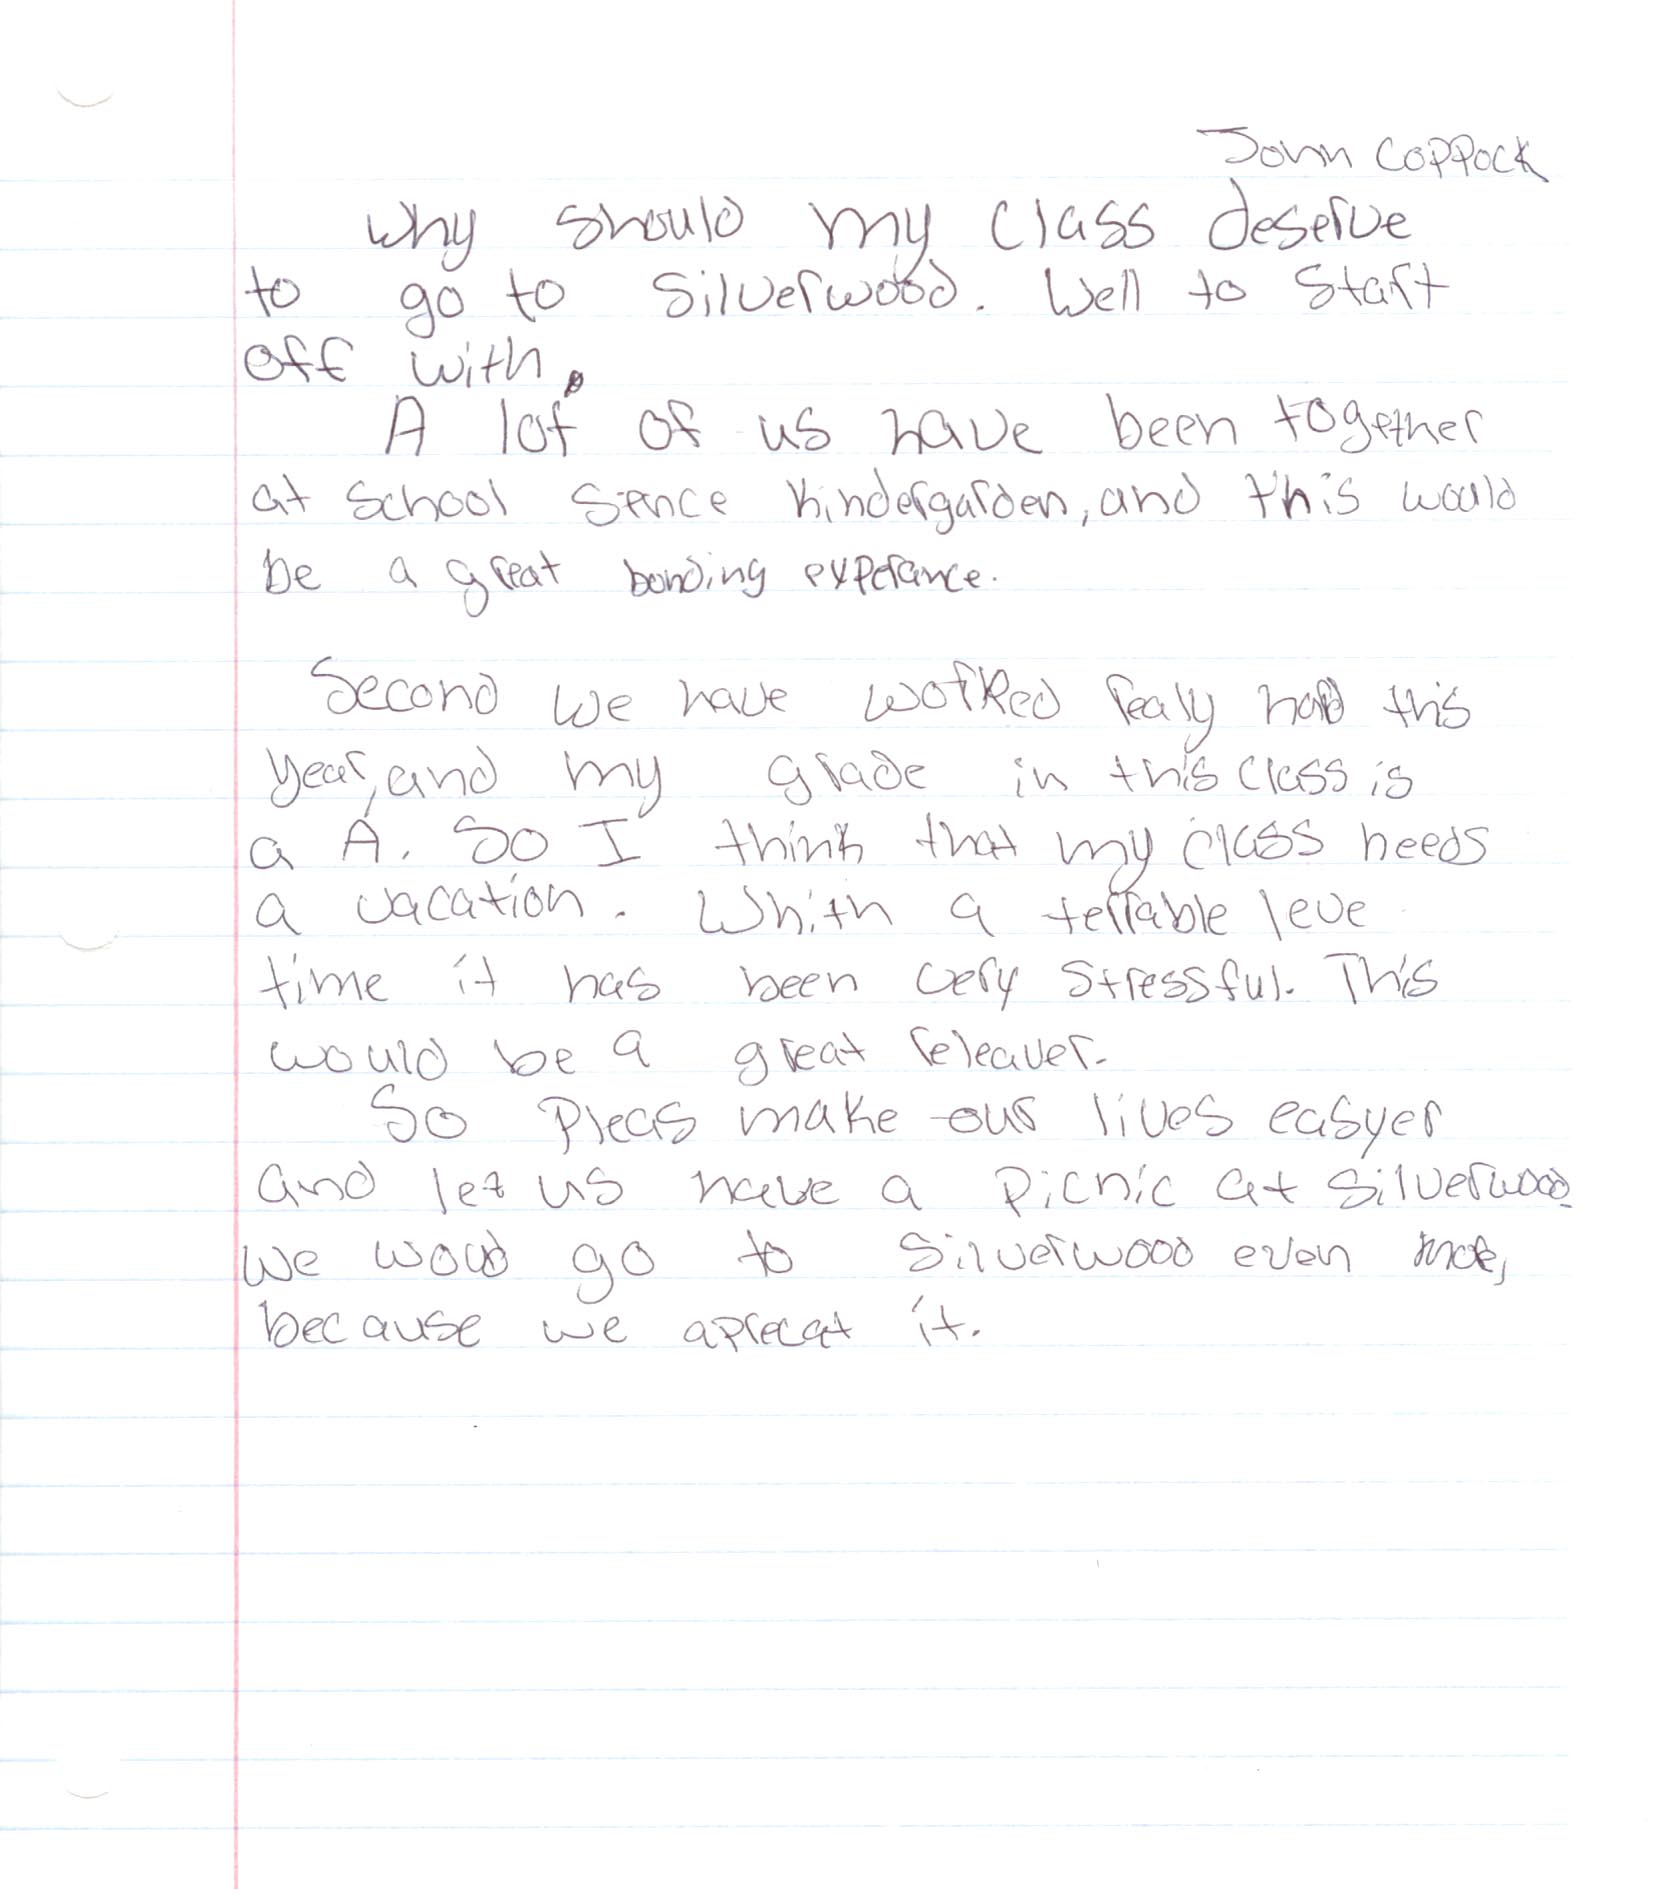 John Coppock
Why should my class deserve
to go to Silverwood. Well to start
off with.
A lot of us have been together
at school sence kindergarden, and this would
be a great bonding experance.
Second we have worked realy hard this
year, and my grade in this class is
a A. So I think that my class needs
a vacation. Whith a terrable leve
time it has been very stressful. This
would be a great releaver.
So pleas make our lives easyer
and let us have a picnic at silverwood.
We would go to silverwood even
because we aprecat it.